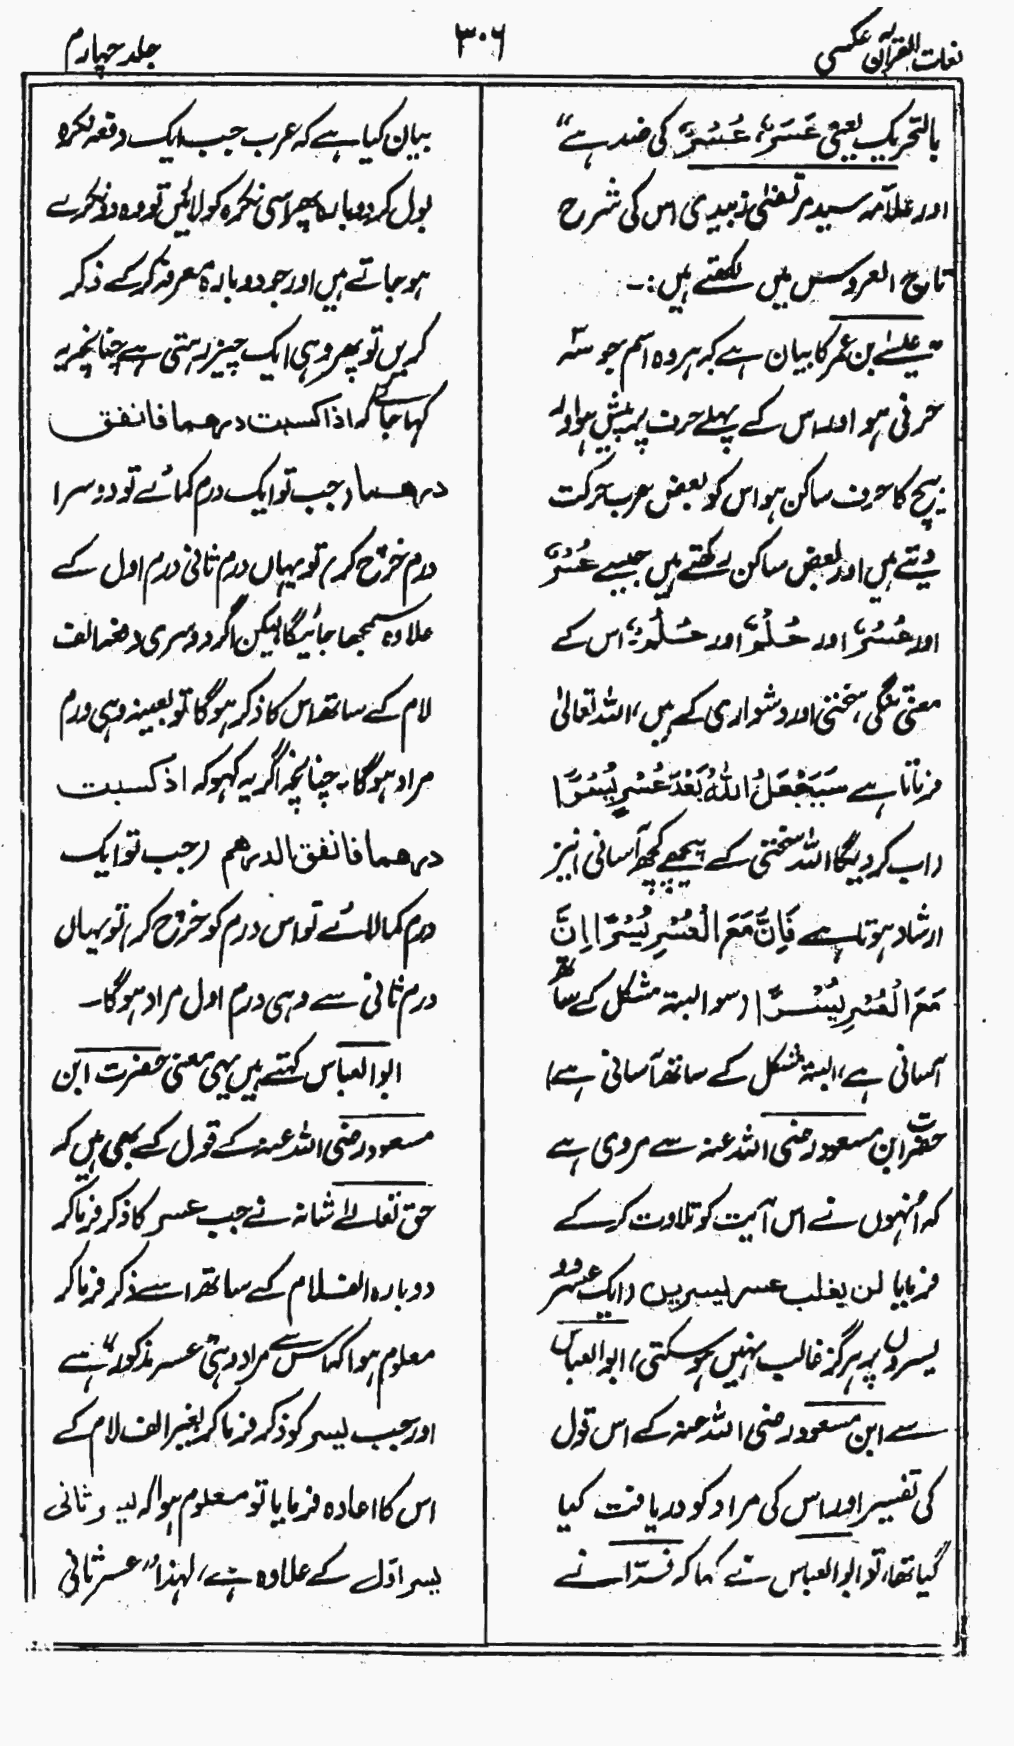 لغات القرآن عکسی
۳۰۶
جلد چہارم
بالتحریک یعنی عَسَرٌ، عُسُرٌ کی ضد ہے"
اور علامہ سید مرتضیٰ زبیدی اس کی شرح
تاج العروس میں لکھتے ہیں:۔
عیسےٰ بن عمر کا بیان ہے کہ ہر وہ اسم جو سہ
حرفی ہو اور اس کے پہلے حرف پر پیش ہو اور
بیچ کا حرف ساکن ہو اس کو بعض عرب حرکت
دیتے ہیں اور بعض ساکن رکھتے ہیں جیسے عُسْرٌ
اور عُسُرٌ اور حُلْمٌ اور حُلُمٌ، اس کے
معنی تنگی، سختی اور دشواری کے ہیں، اللہ تعالیٰ
فرماتا ہے سَيَجْعَلُ اللّٰهُ بَعْدَ عُسْرٍ يُسْرًا
(اب کر دیگا اللہ سختی کے پیچھے کچھ آسانی) نیز
ارشاد ہوتا ہے فَاِنَّ مَعَ الْعُسْرِ يُسْرًا اِنَّ
مَعَ الْعُسْرِ يُسْرًا (سو البتہ مشکل کے ساتھ
آسانی ہے، البتہ مشکل کے ساتھ آسانی ہے)
حضرت ابن مسعود رضی اللہ عنہ سے مروی ہے
کہ اُنہوں نے اس آیت کو تلاوت کر کے
فرمایا لن یغلب عسر یسرین (ایک عسر دو
یسروں پر ہرگز غالب نہیں ہو سکتی) ابو العباس
سے ابن مسعود رضی اللہ عنہ کے اس قول
کی تفسیر اور اس کی مراد کو دریافت کیا
گیا تھا، تو ابو العباس نے کہا کہ فرّا نے
بیان کیا ہے کہ عرب جب ایک دفعہ نکرہ
بول کر دوبارہ پھر اسی نکرہ کو لائیں تو وہ دو نکرے
ہو جاتے ہیں اور جو دوبارہ معرفہ کر کے ذکر
کریں تو پھر وہی ایک چیز رہتی ہے چنانچہ یہ
کہا جائے کہ اذا کسبت درھما فانفق
درھما (جب تو ایک درم کمائے تو دوسرا
درم خرچ کر) تو یہاں درم ثانی درم اول کے
علاوہ سمجھا جائیگا لیکن اگر دوسری دفعہ الف
لام کے ساتھ اس کا ذکر ہوگا تو بعینہ وہی درم
مراد ہوگا۔ چنانچہ اگر یہ کہو کہ اذ کسبت
درھما فانفق الدرھم (جب تو ایک
درم کما لائے تو اس درم کو خرچ کر) تو یہاں
درم ثانی سے وہی درم اول مراد ہوگا۔
ابو العباس کہتے ہیں یہی معنی حضرت ابن
مسعود رضی اللہ عنہ کے قول کے بھی ہیں کہ
حق تعالےٰ شانہ نے جب عسر کا ذکر فرما کر
دوبارہ الف لام کے ساتھ اسے ذکر فرما کر
معلوم ہوا کہ اس سے مراد وہی "عسر مذکور" ہے
اور جب یسر کو ذکر فرما کر بغیر الف لام کے
اس کا اعادہ فرمایا تو معلوم ہوا کہ یسر ثانی
یسر اوّل کے علاوہ ہے، لہٰذا "عسر ثانی